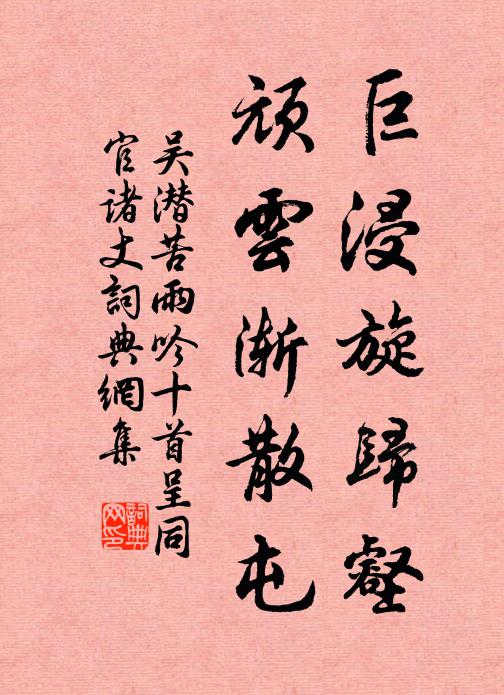 巨浸旋歸壑
頑雲漸散屯
吴潜苦雨吟十首呈同
官诸丈詞典網集
詞典網印